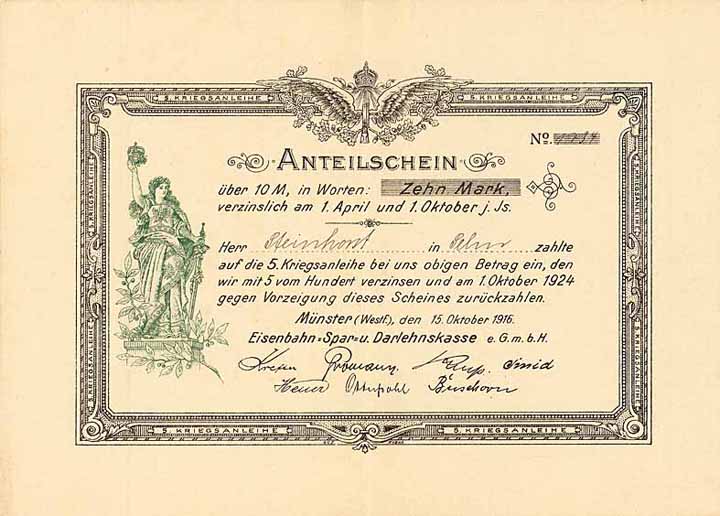 5. KRIEGSANLEIHE
5. KRIEGSANLEIHE
5. KRIEGSANLEIHE
5. KRIEGSANLEIHE
No.
ANTEILSCHEIN
über 10 M, in Worten: Zehn Mark,
verzinslich am 1. April und 1. Oktober j. Js.
Herr Steinhorst in zahlte
auf die 5. Kriegsanleihe bei uns obigen Betrag ein, den
wir mit 5 vom Hundert verzinsen und am 1. Oktober 1924
gegen Vorzeigung dieses Scheines zurückzahlen.
Münster (Westf.), den 15. Oktober 1916.
Eisenbahn=Spar=u. Darlehnskasse e. G. m. b. H.
Smid
5. KRIEGSANLEIHE
5. KRIEGSANLEIHE
5. KRIEGSANLEIHE
5. KRIEGSANLEIHE